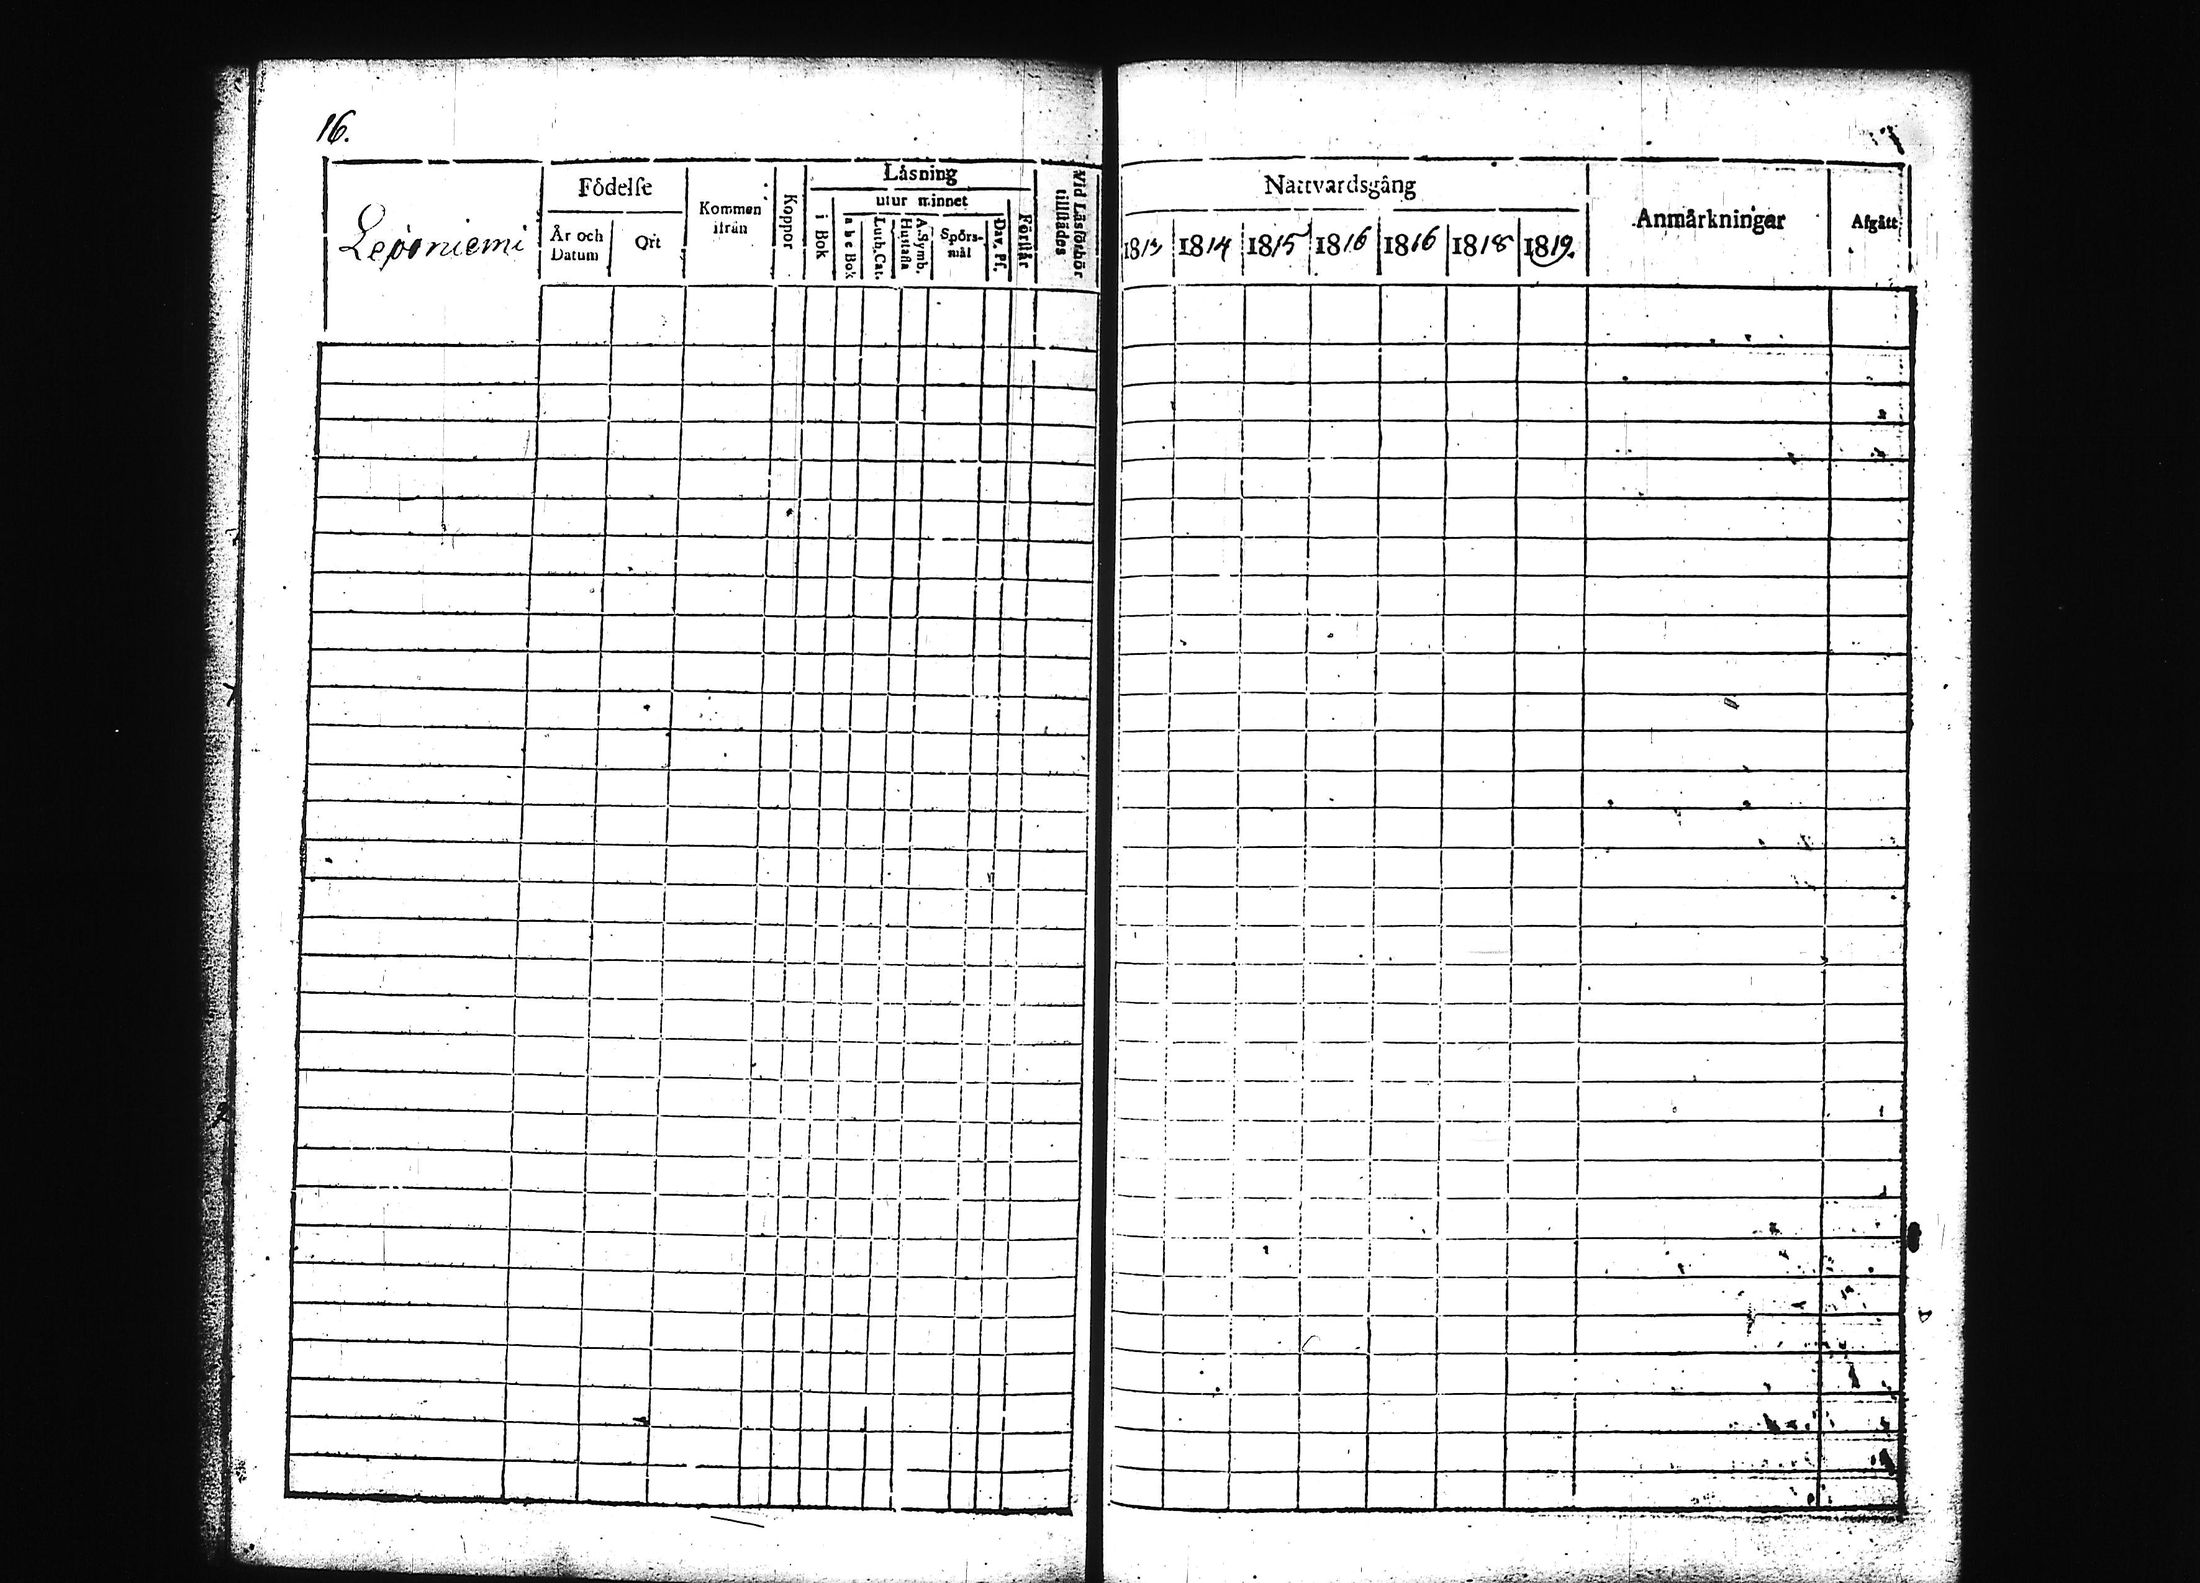 16.
Leponiemi
Födelse
År och Datum
Ort
Kommen ifrån
Koppor
Läsning
i Bok
utur minnet
a b c Bok
Luth. Cat.
A. Symb. Hustafla
Spörs-mål
Dav. Ps.
Förstår
Vid Läsförhör tillstädes
Nattvardsgång
1813 1814 1815 1816 1816 1818 1819.
Anmärkningar
Afgått